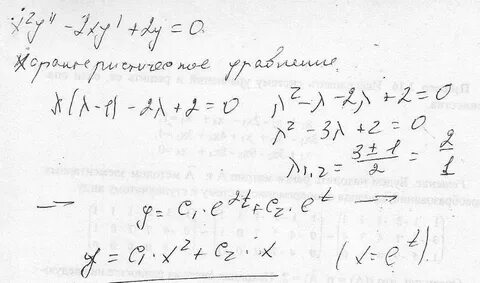 x²y" - 2xy' + 2y = 0.
Характеристическое уравнение
λ(λ-1) - 2λ + 2 = 0   λ² - λ - 2λ + 2 = 0
λ² - 3λ + 2 = 0
λ₁,₂ = (3 ± 1)/2 = 2 1
→ y = C₁·e^{2t} + C₂·e^t →
y = C₁·x² + C₂·x   (x = e^t).